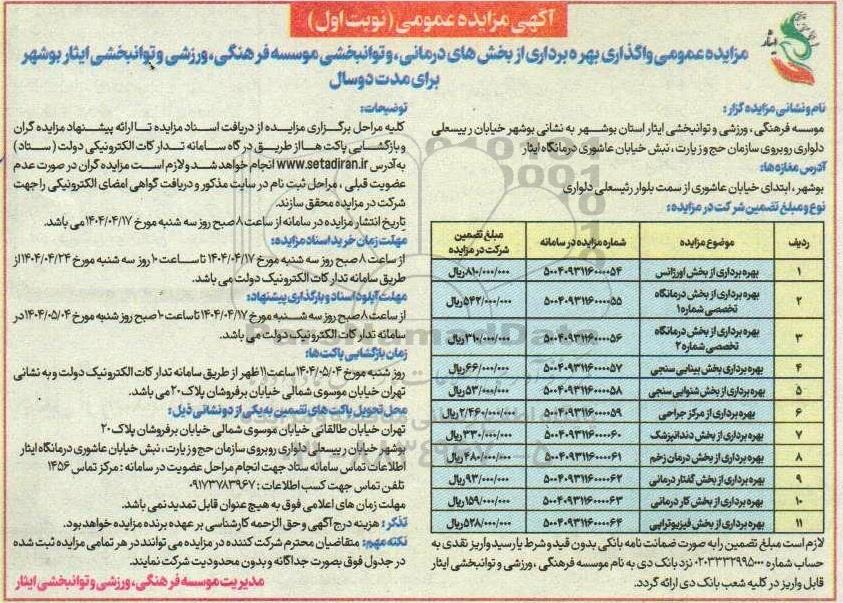 آگهی مزایده عمومی (نوبت اول)
ایثار
مزایده عمومی واگذاری بهره برداری از بخش های درمانی، و توانبخشی موسسه فرهنگی، ورزشی و توانبخشی ایثار بوشهر
برای مدت دوسال
نام و نشانی مزایده گزار:
موسسه فرهنگی، ورزشی و توانبخشی ایثار استان بوشهر به نشانی بوشهر خیابان رییسعلی
دلواری روبروی سازمان حج و زیارت، نبش خیابان عاشوری درمانگاه ایثار
آدرس مغازه ها:
بوشهر، ابتدای خیابان عاشوری از سمت بلوار رئیسعلی دلواری
نوع و مبلغ تضمین شرکت در مزایده:
ردیف موضوع مزایده شماره مزایده در سامانه مبلغ تضمین شرکت در مزایده
۱ بهره برداری از بخش اورژانس ۵۰۰۴۰۹۳۱۱۶۰۰۰۰۵۴ ۸۱۰/۰۰۰/۰۰۰ریال
۲ بهره برداری از بخش درمانگاه تخصصی شماره۱ ۵۰۰۴۰۹۳۱۱۶۰۰۰۰۵۵ ۵۴۲/۰۰۰/۰۰۰ریال
۳ بهره برداری از بخش درمانگاه تخصصی شماره۲ ۵۰۰۴۰۹۳۱۱۶۰۰۰۰۵۶ ۳۱۰/۰۰۰/۰۰۰ریال
۴ بهره برداری بخش بینایی سنجی ۵۰۰۴۰۹۳۱۱۶۰۰۰۰۵۷ ۶۶/۰۰۰/۰۰۰ریال
۵ بهره برداری از بخش شنوایی سنجی ۵۰۰۴۰۹۳۱۱۶۰۰۰۰۵۸ ۵۳/۰۰۰/۰۰۰ریال
۶ بهره برداری از مرکز جراحی ۵۰۰۴۰۹۳۱۱۶۰۰۰۰۵۹ ۲/۴۶۰/۰۰۰/۰۰۰ریال
۷ بهره برداری از بخش دندانپزشک ۵۰۰۴۰۹۳۱۱۶۰۰۰۰۶۰ ۳۳۰/۰۰۰/۰۰۰ریال
۸ بهره برداری از بخش درمان زخم ۵۰۰۴۰۹۳۱۱۶۰۰۰۰۶۱ ۴۸۰/۰۰۰/۰۰۰ریال
۹ بهره برداری از بخش گفتار درمانی ۵۰۰۴۰۹۳۱۱۶۰۰۰۰۶۲ ۹۳/۰۰۰/۰۰۰ریال
۱۰ بهره برداری از بخش کار درمانی ۵۰۰۴۰۹۳۱۱۶۰۰۰۰۶۳ ۱۵۹/۰۰۰/۰۰۰ریال
۱۱ بهره برداری از بخش فیزیوتراپی ۵۰۰۴۰۹۳۱۱۶۰۰۰۰۶۴ ۵۲۸/۰۰۰/۰۰۰ریال
لازم است مبلغ تضمین را به صورت ضمانت نامه بانکی بدون قید و شرط یا رسید واریز نقدی به
حساب شماره ۰۲۰۳۳۳۲۹۹۵۰۰۰ نزد بانک دی به نام موسسه فرهنگی، ورزشی و توانبخشی ایثار
قابل واریز در کلیه شعب بانک دی ارائه گردد.
توضیحات:
کلیه مراحل برگزاری مزایده از دریافت اسناد مزایده تا ارائه پیشنهاد مزایده گران
و بازگشایی پاکت ها از طریق درگاه سامانه تدارکات الکترونیکی دولت (ستاد)
به آدرس www.setadiran.ir انجام خواهد شد و لازم است مزایده گران در صورت عدم
عضویت قبلی، مراحل ثبت نام در سایت مذکور و دریافت گواهی امضای الکترونیکی را جهت
شرکت در مزایده محقق سازند.
تاریخ انتشار مزایده در سامانه از ساعت ۸صبح روز سه شنبه مورخ ۱۴۰۴/۰۴/۱۷ می باشد.
مهلت زمان خرید اسناد مزایده:
از ساعت ۸ صبح روز سه شنبه مورخ ۱۴۰۴/۰۴/۱۷ تا ساعت ۱۰ روز سه شنبه مورخ ۱۴۰۴/۰۴/۲۴ از
طریق سامانه تدارکات الکترونیک دولت می باشد.
مهلت آپلود اسناد و بارگذاری پیشنهاد:
از ساعت ۸ صبح روز سه شنبه مورخ ۱۴۰۴/۰۴/۱۷ تا ساعت ۱۰ صبح روز شنبه مورخ ۱۴۰۴/۰۵/۰۴ در
سامانه تدارکات الکترونیک دولت می باشد.
زمان بازگشایی پاکت ها:
روز شنبه مورخ ۱۴۰۴/۰۵/۰۴ ساعت ۱۱ ظهر از طریق سامانه تدارکات الکترونیک دولت و به نشانی
تهران خیابان موسوی شمالی خیابان برفروشان پلاک۲۰ می باشد.
محل تحویل پاکت های تضمین به یکی از دو نشانی ذیل:
تهران خیابان طالقانی خیابان موسوی شمالی خیابان برفروشان پلاک ۲۰
بوشهر خیابان رییسعلی دلواری روبروی سازمان حج و زیارت، نبش خیابان عاشوری درمانگاه ایثار
اطلاعات تماس سامانه ستاد جهت انجام مراحل عضویت در سامانه: مرکز تماس ۱۴۵۶
تلفن تماس جهت کسب اطلاعات: ۰۹۱۷۳۷۸۳۹۶۷
مهلت زمان های اعلامی فوق به هیچ عنوان قابل تمدید نمی باشد.
تذکر: هزینه درج آگهی و حق الزحمه کارشناسی بر عهده برنده مزایده خواهد بود.
نکته مهم: متقاضیان محترم شرکت کننده در مزایده می توانند در هر تمامی مزایده ثبت شده
در جدول فوق بصورت جداگانه و بدون محدودیت شرکت نمایند.
مدیریت موسسه فرهنگی، ورزشی و توانبخشی ایثار